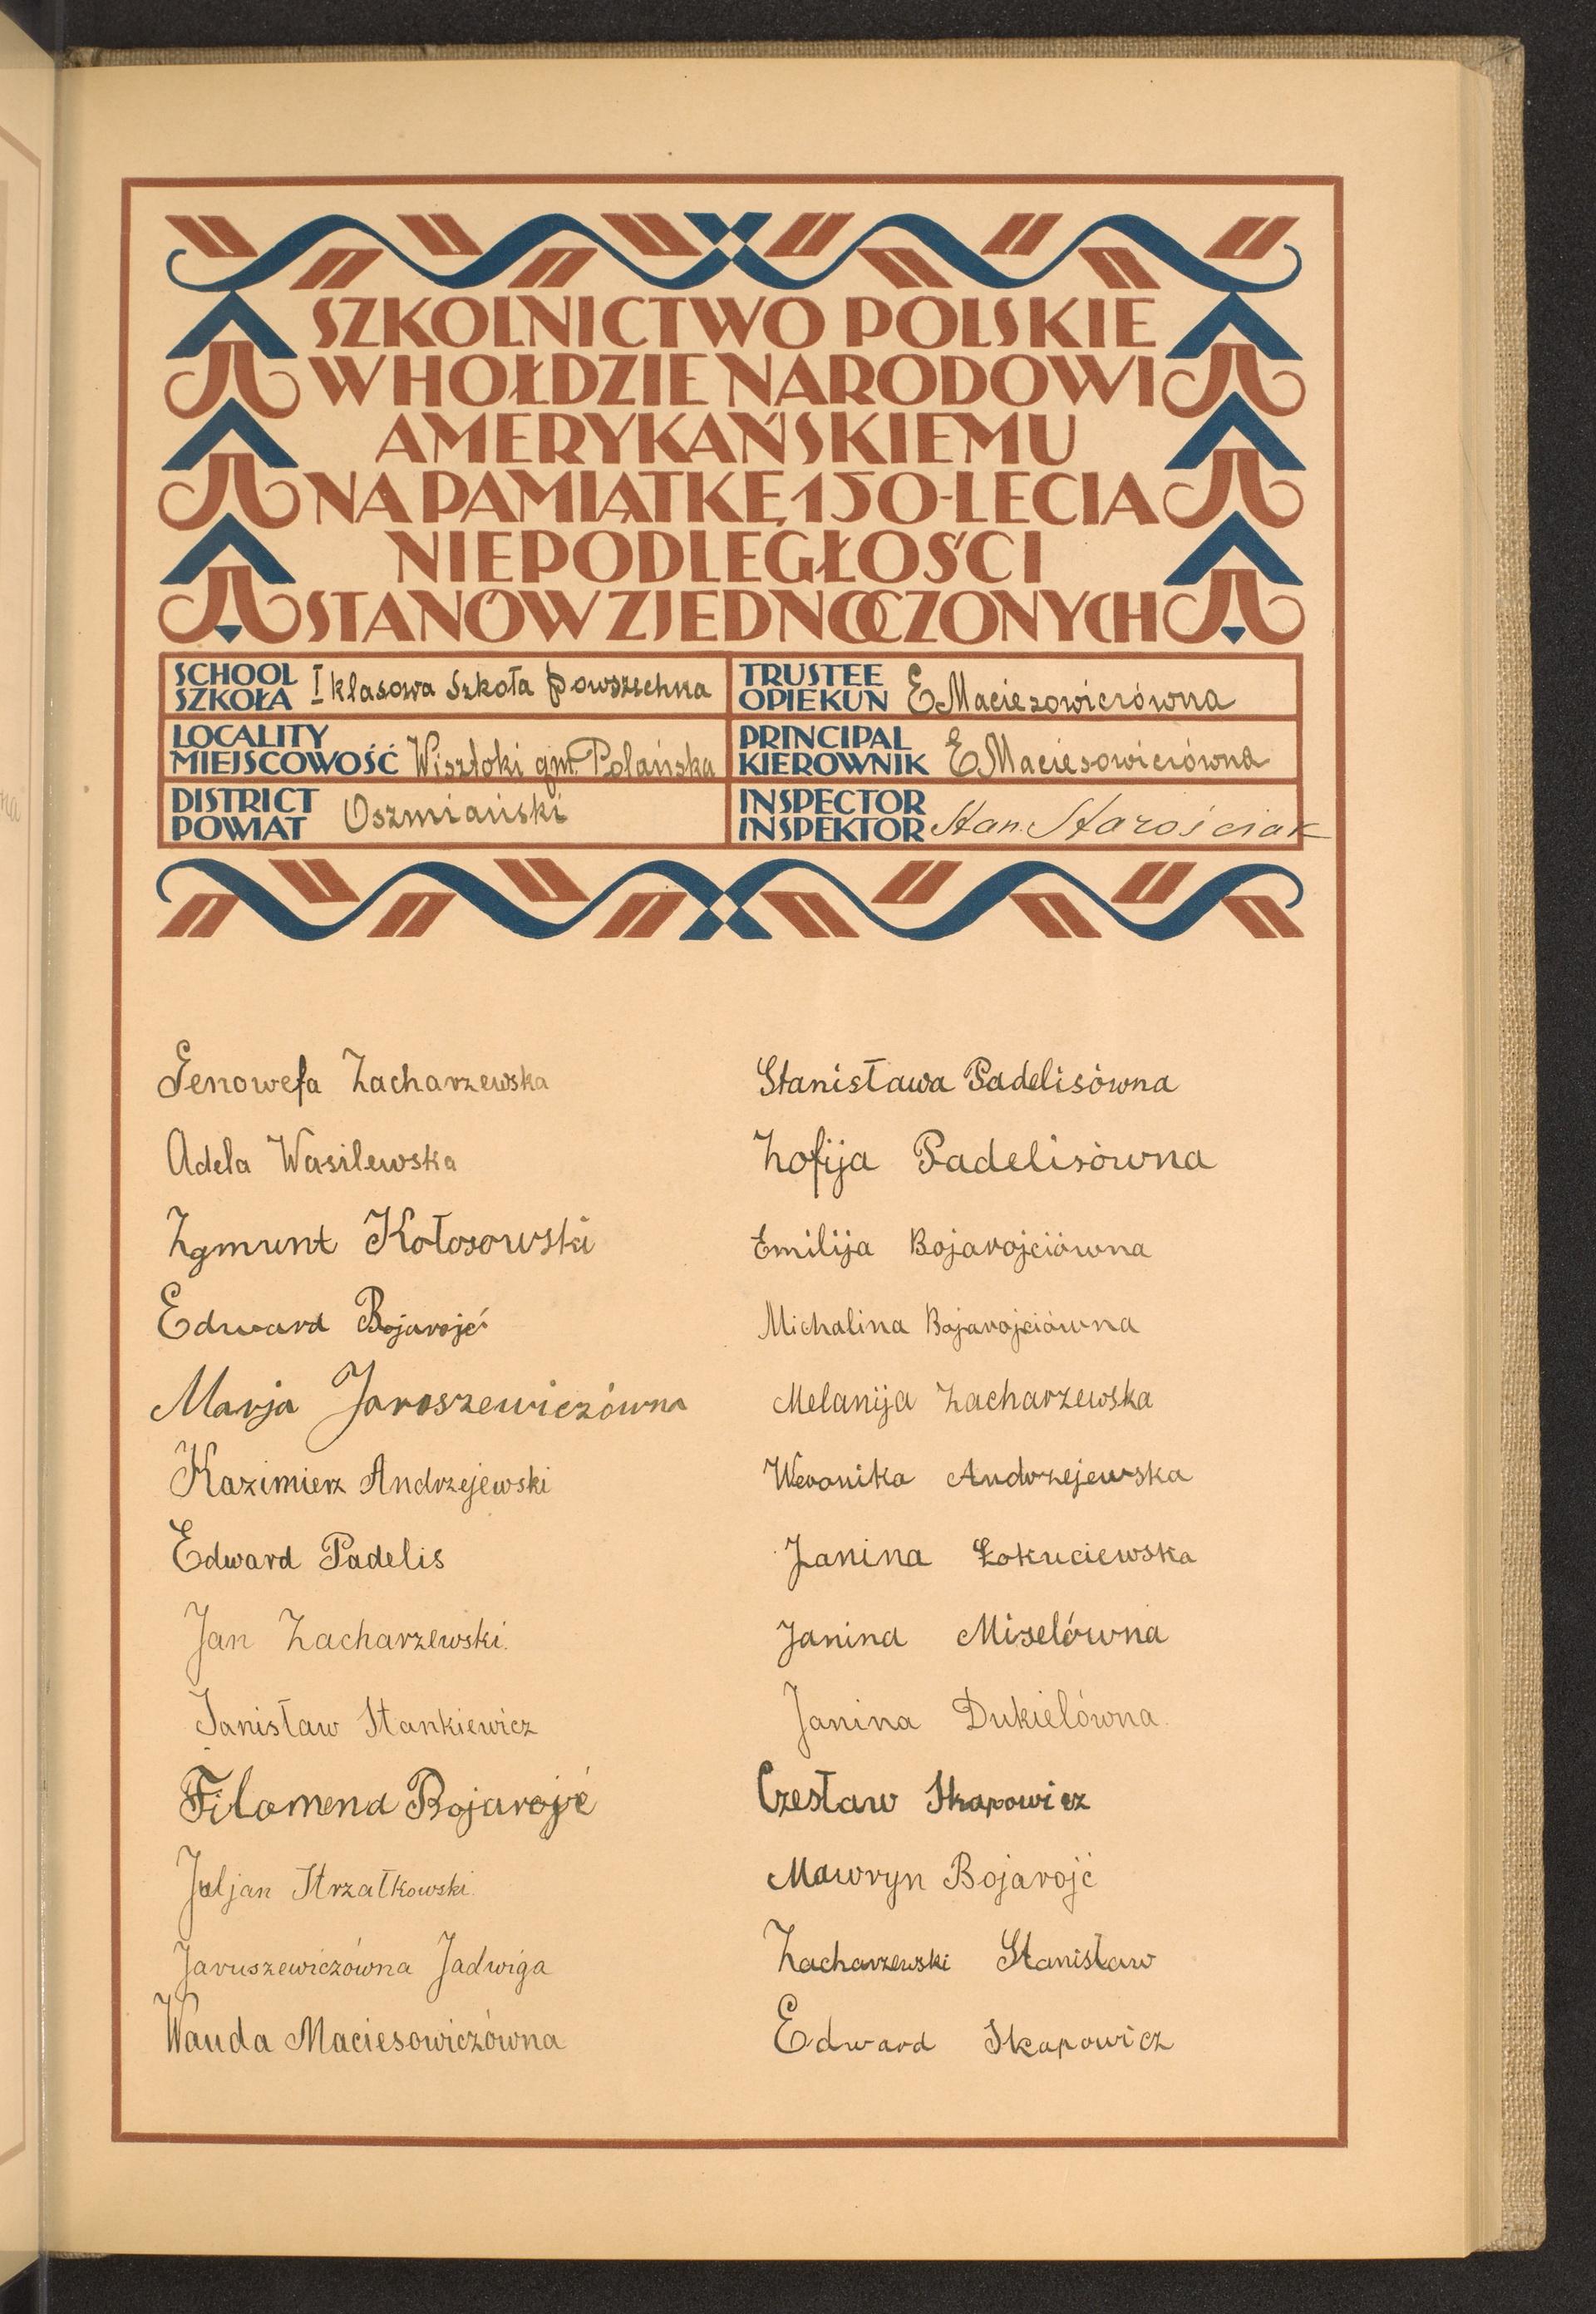 SZKOLNICTWO POLSKIE
W HOŁDZIE NARODOWI
AMERYKAŃSKIEMU
NA PAMIĄTKĘ 150-LECIA
NIEPODLEGŁOŚCI
STANÓW ZJEDNOCZONYCH
SCHOOL
SZKOŁA I klasowa Szkoła powszechna
TRUSTEE
OPIEKUN E Maciesowiczówna
LOCALITY
MIEJSCOWOŚĆ Wisztoki gm. Polańska
PRINCIPAL
KIEROWNIK E Maciesowiczówna
DISTRICT
POWIAT Oszmiański
INSPECTOR
INSPEKTOR Stan. Starościak
Genowefa Zacharzewska
Adela Wasilewska
Zgmunt Kołosowski
Edward Bojarojć
Marja Jaroszewiczówna
Kazimierz Andrzejewski
Edward Padelis
Jan Zacharzewski.
Stanisław Stankiewicz
Filomena Bojarojć
Juljan Strzałkowski.
Jaruszewiczówna Jadwiga
Wanda Maciesowiczówna
Stanisława Padelisówna
Zofija Padelisówna
Emilija Bojarojciówna
Michalina Bojarojciówna
Melanija Zacharzewska
Weronika Andrzejewska
Janina Łokuciewska
Janina Miselówna
Janina Dukielówna.
Czesław Skapowicz
Mawryn Bojarojć
Zacharzewski Stanisław
Edward Skapowicz